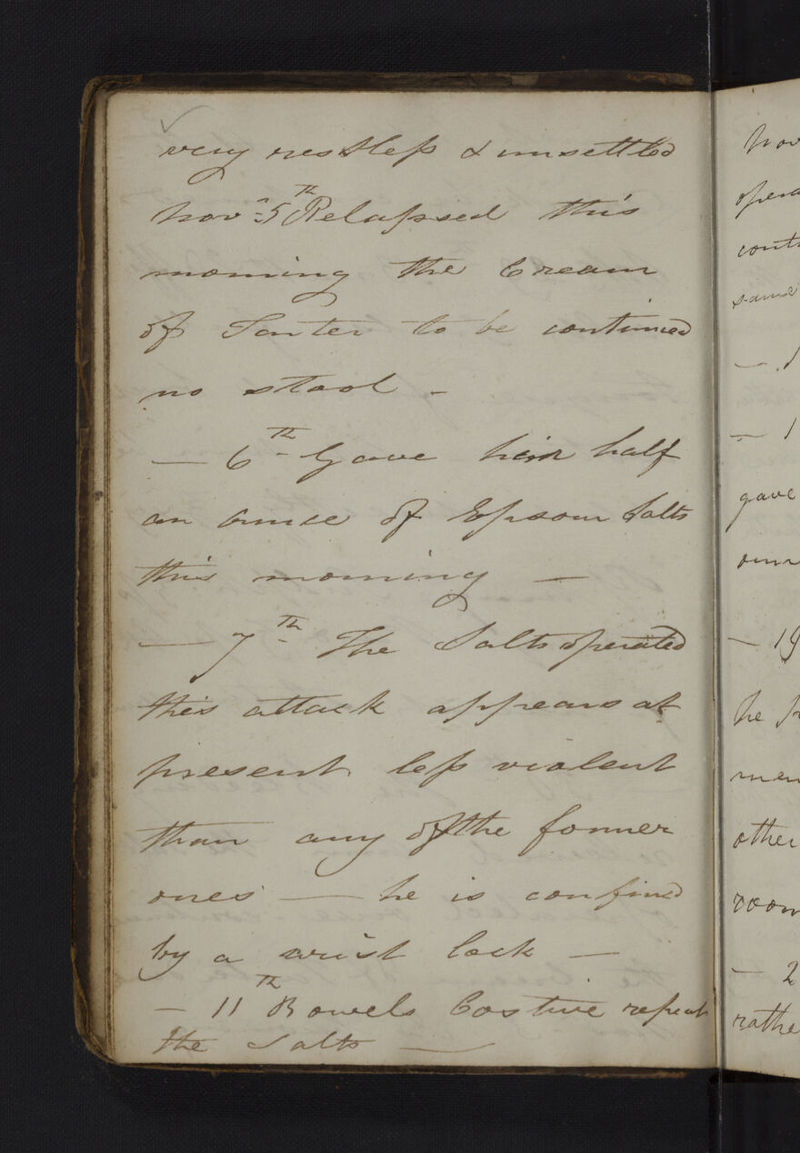 very restless & unsettled
Novr 5th Relapsed this
morning the Cream
of Tarter to be continued
no stool -
— 6th Gave him half
an ounce of Epsom Salts
this morning —
— 7th The Salts operated
this attack appears at
present less violent
than any of the former
ones — he is confined
by a wrist lock —
— 11th Bowels Costive repeat
the Salts —
Nov
opera
conti
same
— 1
gave
— 19
he
men
other
room
— 2
rathe